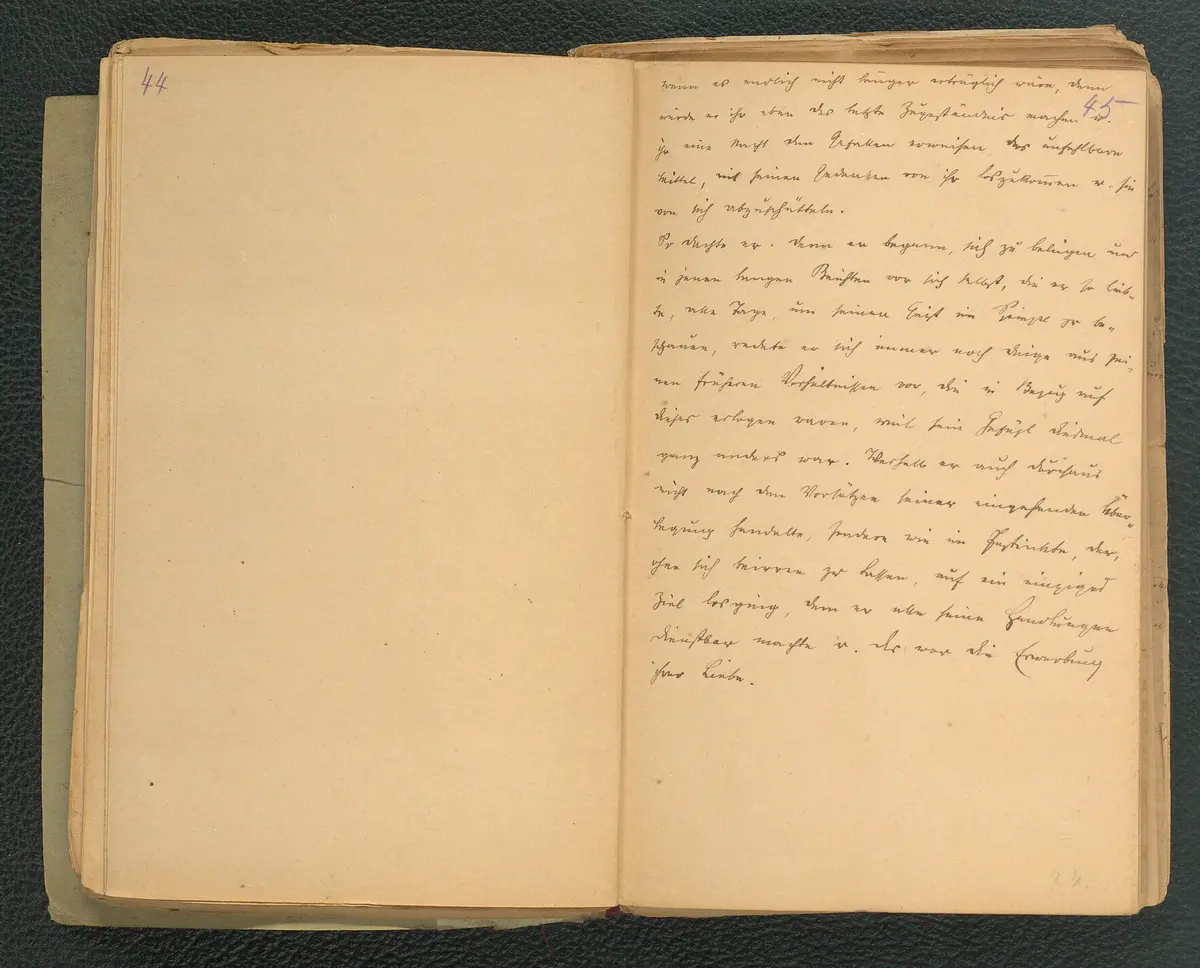 44
45
wenn es endlich nicht länger erträglich wäre, dann
würde er ihr eben das letzte Zugeständnis machen u.
ihr eine Nacht den Gefallen erweisen, das unfehlbare
Mittel, mit seinen Gedanken von ihr loszukommen u. sie
von sich abzuschütteln.
So dachte er. Denn er begann, sich zu belügen und
in jenen langen Beichten vor sich selbst, die er so lieb-
te, alle Tage, um seinen Geist im Spiegel zu be-
schauen, redete er sich immer noch Dinge aus sei-
nen früheren Verhältnissen vor, die in Bezug auf
dieses erlogen waren, weil sein Gefühl diesmal
ganz anders war. Weshalb er auch durchaus
nicht nach den Vorsätzen seiner eingehenden Über-
legung handelte, sondern wie im Instinkte, der,
ohne sich beirren zu lassen, auf ein einziges
Ziel losging, dem er alle seine Handlungen
dienstbar machte u. das war die Erwerbung
ihrer Liebe.
24.